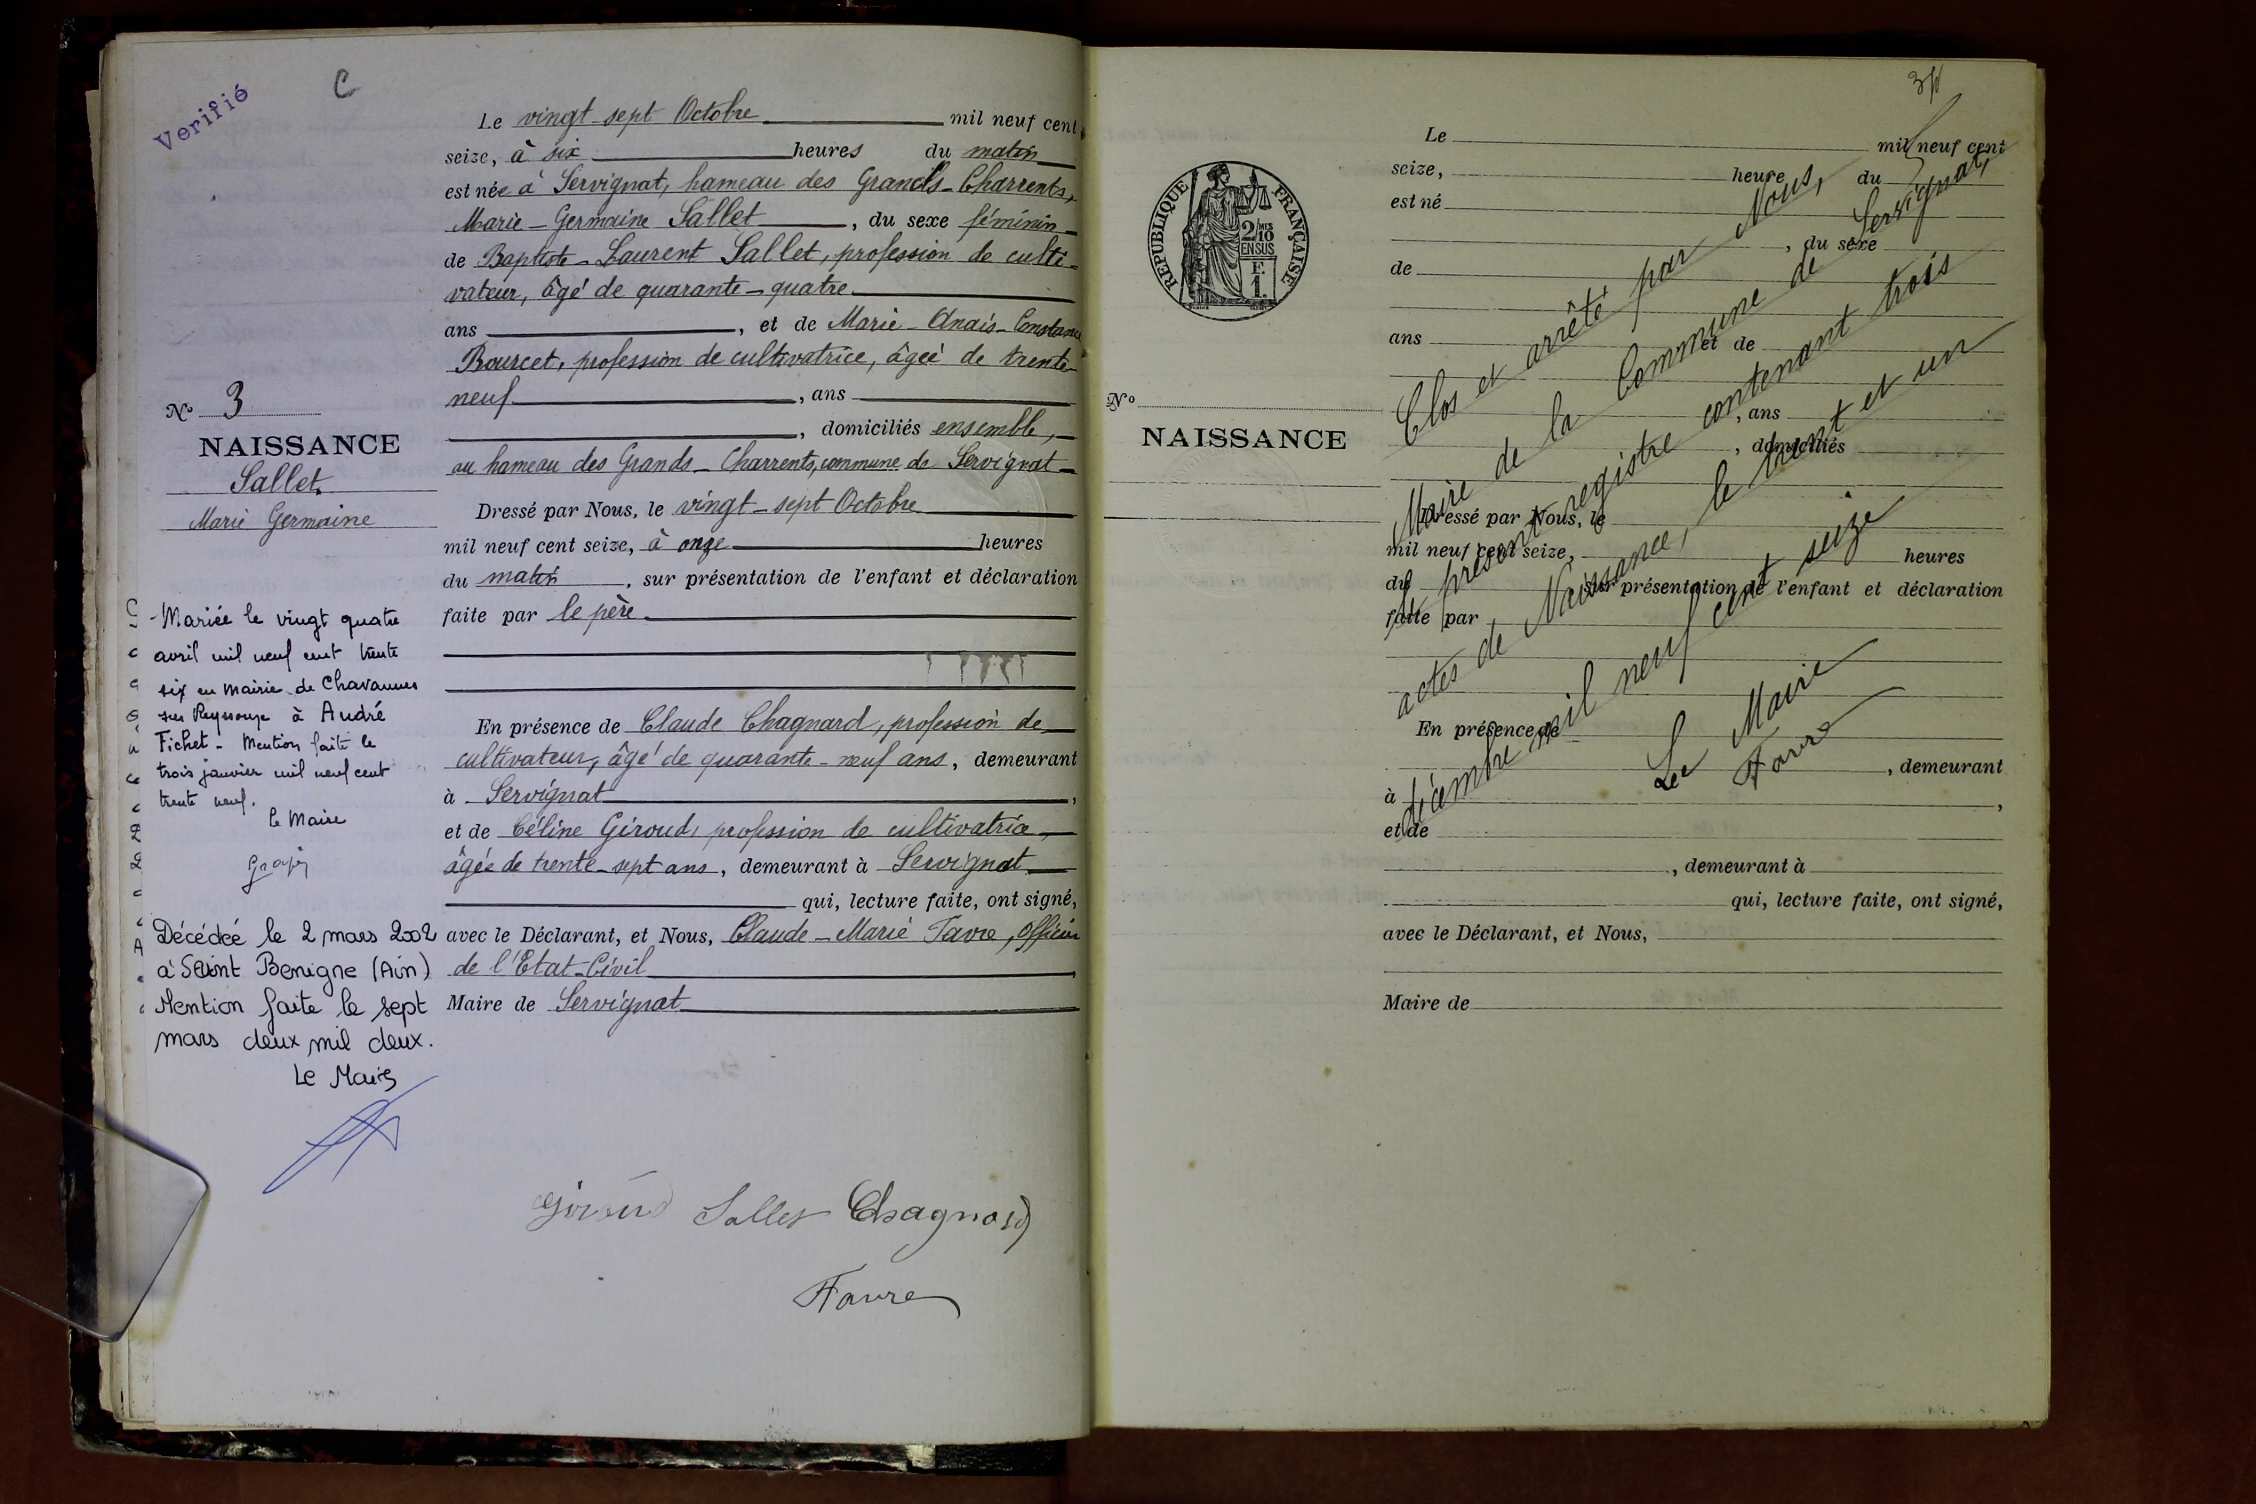 Verifié
C
Le vingt-sept Octobre mil neuf cent
seize, à six heures du matin
est née à Servignat, hameau des Grands-Charrents,
Marie-Germaine Sallet, du sexe féminin
de Baptiste-Laurent Sallet, profession de culti-
vateur, âgé de quarante-quatre
ans, et de Marie-Anaïs-Constance
Bourcet, profession de cultivatrice, âgée de trente-
neuf, ans
, domiciliés ensemble,
au hameau des Grands-Charrents, commune de Servignat
Dressé par Nous, le vingt-sept Octobre
mil neuf cent seize, à onze heures
du matin, sur présentation de l'enfant et déclaration
faite par le père
En présence de Claude Chagnard, profession de
cultivateur, âgé de quarante-neuf ans, demeurant
à Servignat,
et de Céline Giroud, profession de cultivatrice,
âgée de trente-sept ans, demeurant à Servignat
qui, lecture faite, ont signé,
avec le Déclarant, et Nous, Claude-Marie Favre, Officier
de l'Etat-Civil,
Maire de Servignat
Giroud Sallet Chagnard
Favre
No 3
NAISSANCE
Sallet
Marie Germaine
- Mariée le vingt quatre
avril mil neuf cent trente
six en mairie de Chavannes
sur Reyssouze à André
Fichet - Mention faite le
trois janvier mil neuf cent
trente neuf.
le Maire
Décédée le 2 mars 2002
à Saint Benigne (Ain)
Mention faite le sept
mars deux mil deux.
Le Maire
RÉPUBLIQUE FRANÇAISE
2/10
MES
EN SUS
F.
1.
No
NAISSANCE
Le mil neuf cent
seize, heure du
est né
, du sexe
de
ans et de
, ans
, domiciliés
Dressé par Nous, le
mil neuf cent seize, heures
du sur présentation de l'enfant et déclaration
faite par
En présence de
, demeurant
à ,
et de
, demeurant à
qui, lecture faite, ont signé,
avec le Déclarant, et Nous,
Maire de
Clos et arrêté par Nous,
Maire de la Commune de Servignat,
le présent registre contenant trois
actes de Naissance, le trent et un
décembre mil neuf cent seize
Le Maire
Favre